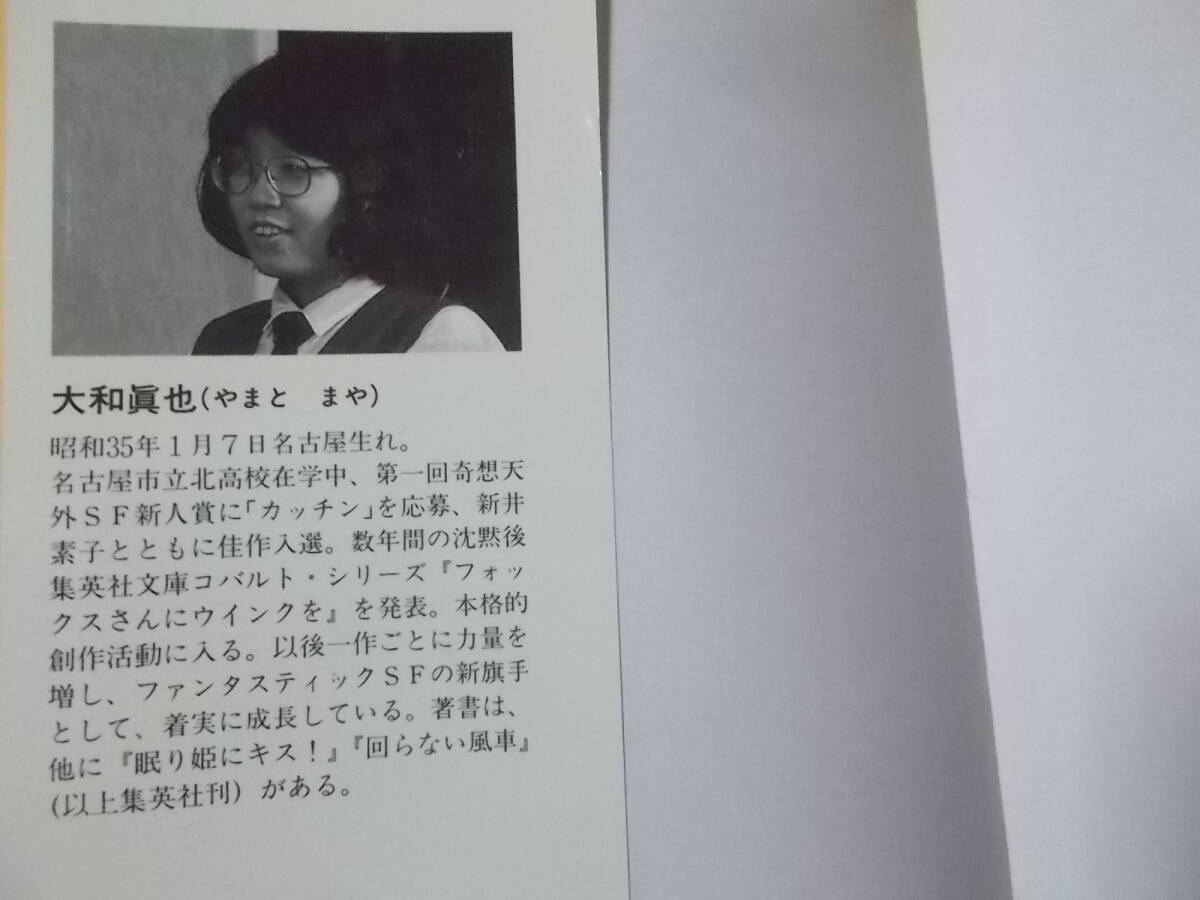 大和眞也(やまと　まや)
昭和35年1月7日名古屋生れ。
名古屋市立北高校在学中、第一回奇想天
外ＳＦ新人賞に「カッチン」を応募、新井
素子とともに佳作入選。数年間の沈黙後
集英社文庫コバルト・シリーズ『フォッ
クスさんにウインクを』を発表。本格的
創作活動に入る。以後一作ごとに力量を
増し、ファンタスティックＳＦの新旗手
として、着実に成長している。著書は、
他に『眠り姫にキス！』『回らない風車』
(以上集英社刊) がある。